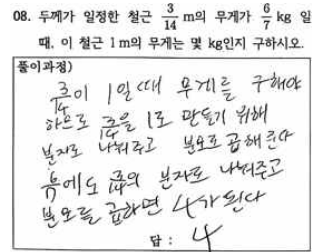 08. 두께가 일정한 철근 3/14 m의 무게가 6/7 kg 일
때, 이 철근 1 m의 무게는 몇 kg인지 구하시오.
풀이과정)
3/14이 1일때 무게를 구해야
하므로 3/14을 1로 만들기 위해
분자로 나눠주고 분모로 곱해준다
6/7에도 3/14의 분자로 나눠주고
분모를 곱하면 4가 된다
답 : 4